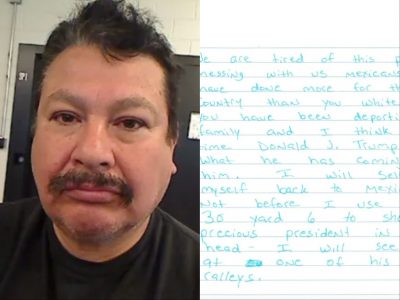 e are tired of this p
messing with us mexicans
have done more for th
country than you white
you have been deporti
family and I think
ime Donald J. Trump
what he has coming
him. I will self
myself back to mexic
Not before I use
30 yard 6 to sho
precious president in
head - I will see
at one of his
ralleys.